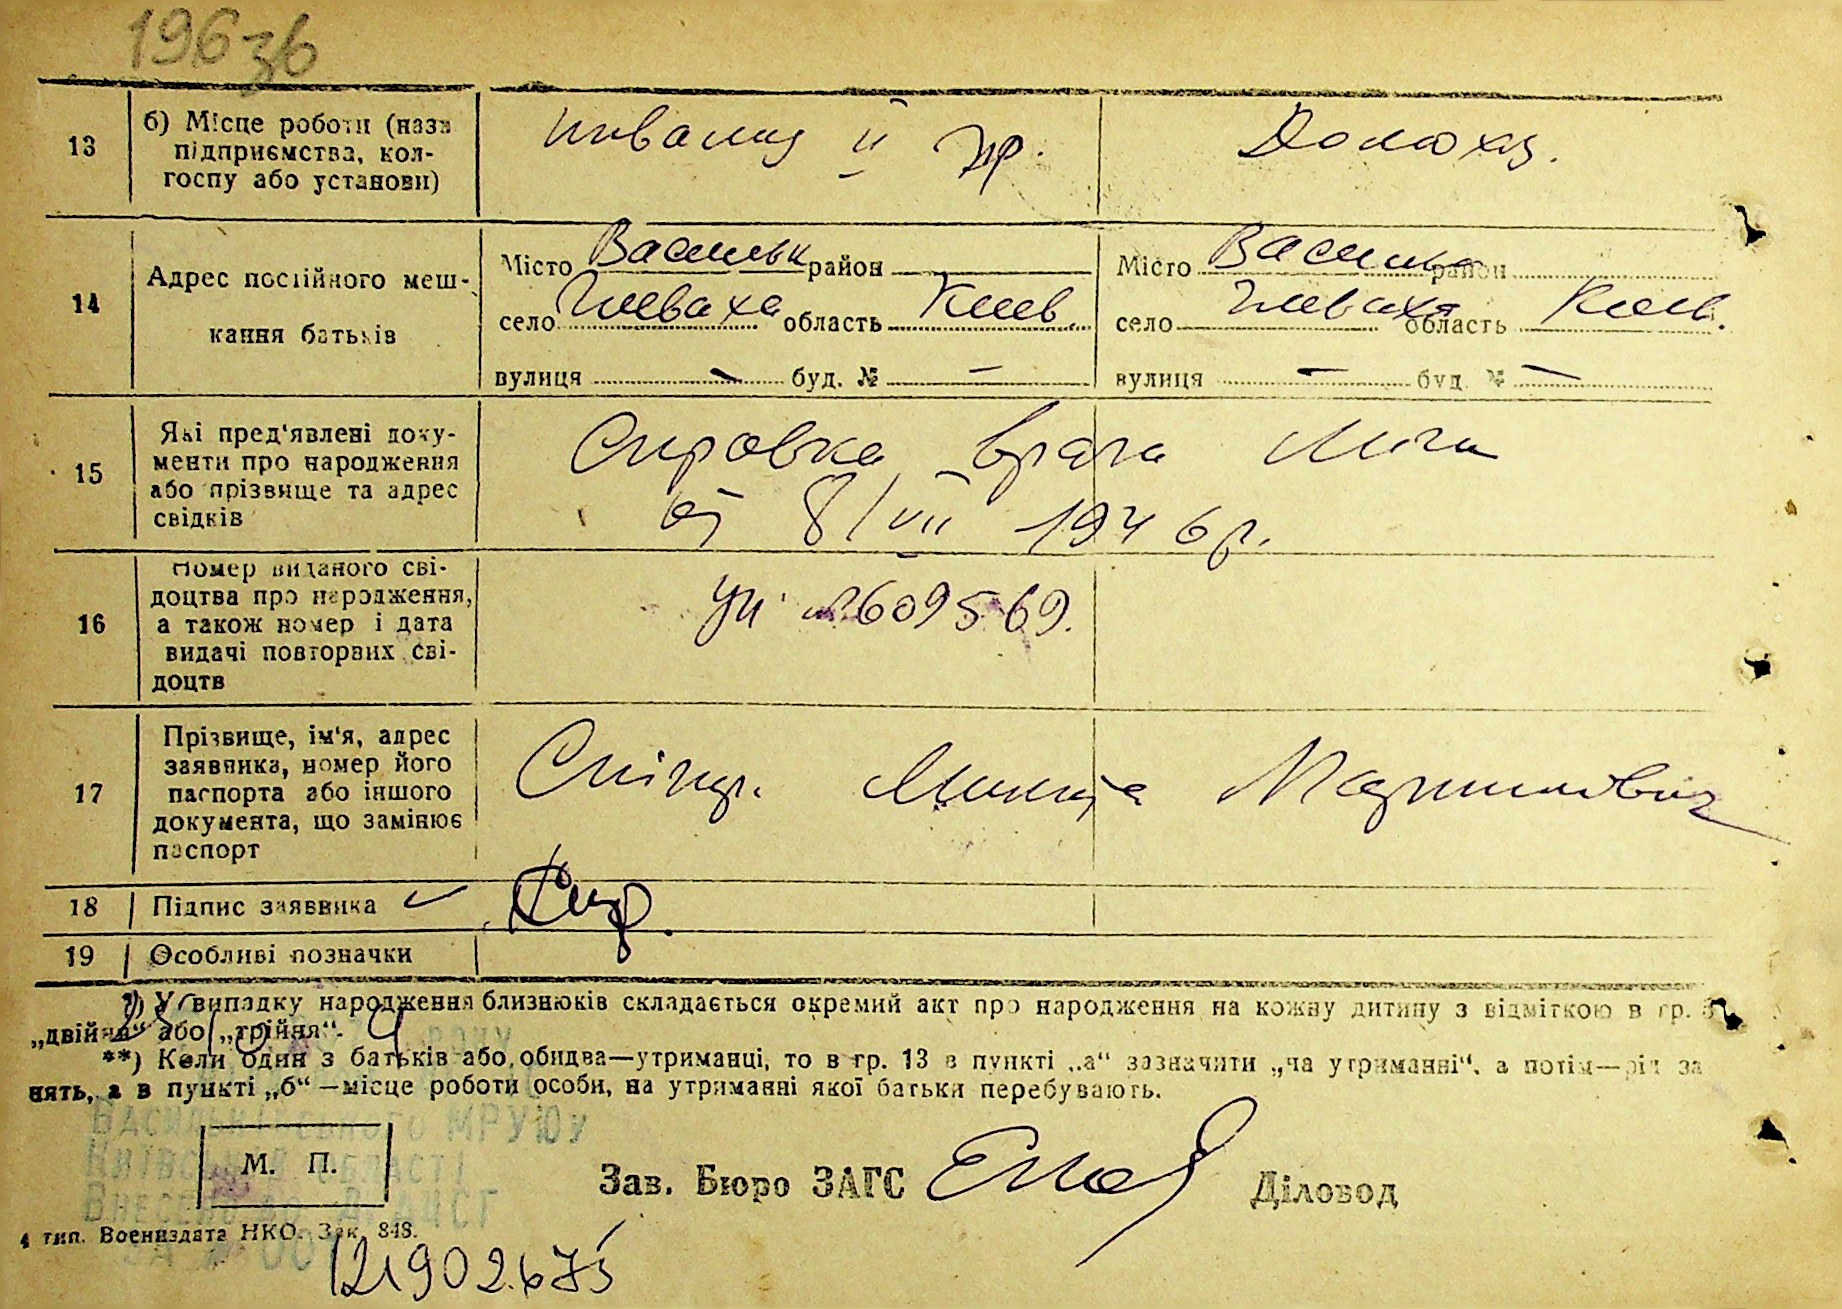 196зв
13
б) Місце роботи (назв
підприємства, кол-
госпу або установи)
инвалид II гр.
Домохоз.
14
Адрес постійного меш-
кання батьків
Місто Васильк район
село Глеваха область Киев.
вулиця — буд. № —
Місто Васильк район
село Глеваха область Киев.
вулиця — буд. № —
15
Які пред'явлені доку-
менти про народження
або прізвище та адрес
свідків
Справка врача
от 8/VII 1946 р.
16
Номер виданого сві-
доцтва про народження,
а також номер і дата
видачі повторних сві-
доцтв
№ 609569.
17
Прізвище, ім'я, адрес
заявника, номер його
паспорта або іншого
документа, що замінює
паспорт
Микита Мартинович
18
Підпис заявника
19
Особливі позначки
*) У випадку народження близнюків складається окремий акт про народження на кожну дитину з відміткою в гр. 3
„двійня“ або „трійня“.
**) Коли один з батьків або обидва—утриманці, то в гр. 13 в пункті „а“ зазначити „на утриманні“, а потім—рід за
нять, а в пункті „б“—місце роботи особи, на утриманні якої батьки перебувають.
Васильківського МРУЮ
Київської області
М. П.
Зав. Бюро ЗАГС
Діловод
4 тип. Воениздата НКО. Зак. 848.
121902675